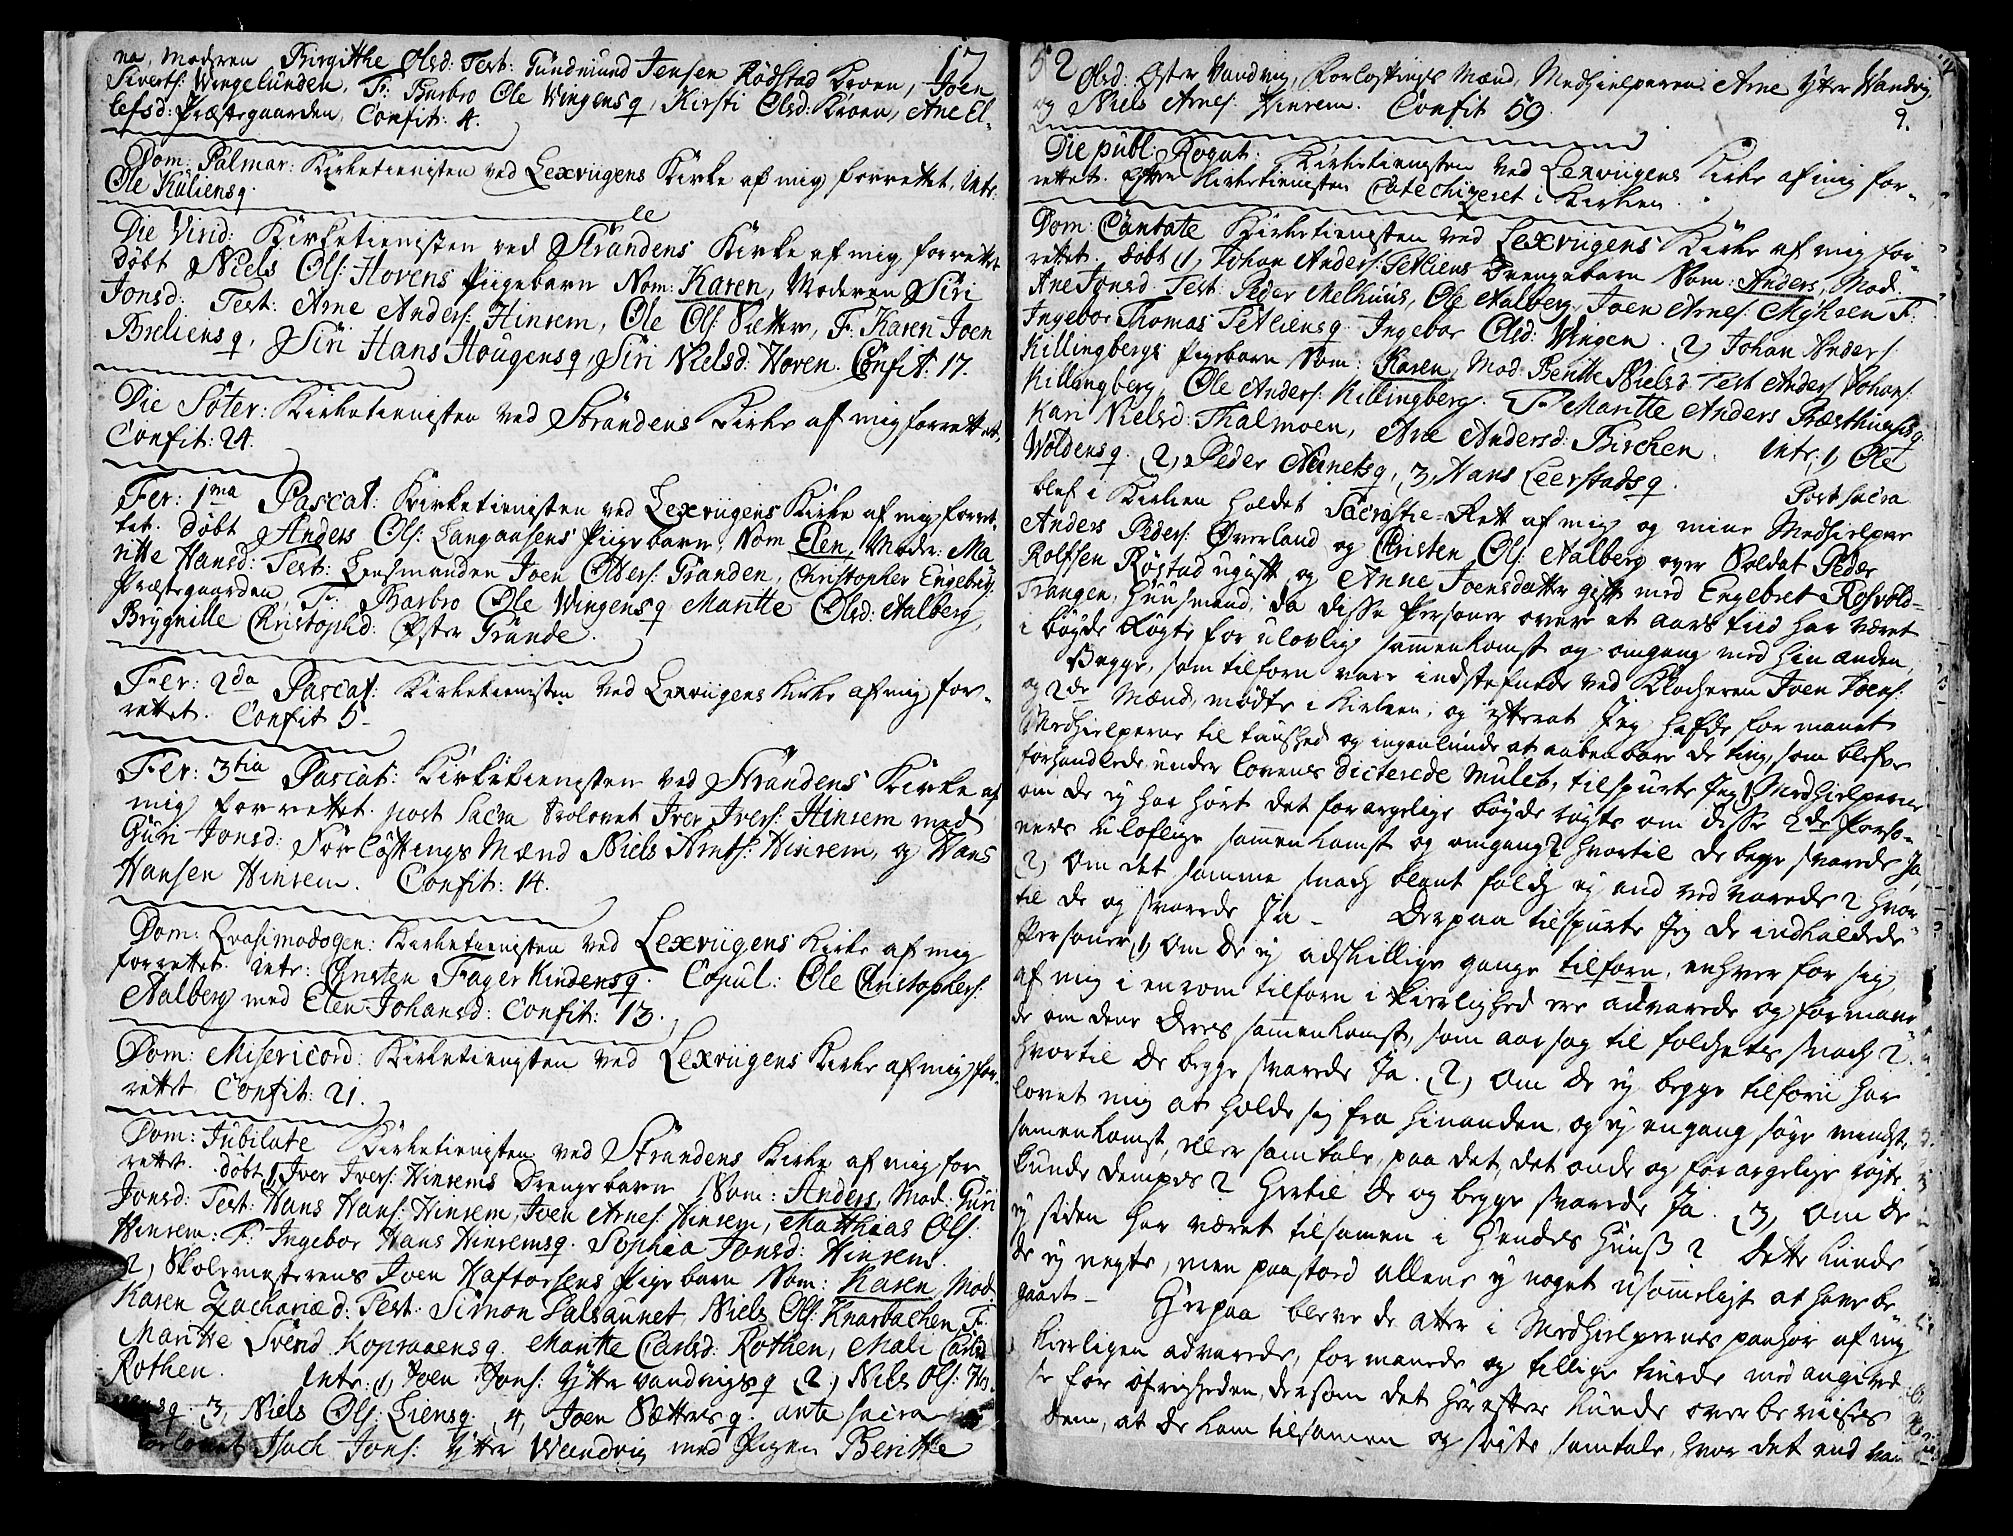 17
na, Moderen Birgitthe Olsd: Test: Gundmund Jensen Rødstad Kroen, Joen
Siverts: Wingelunden, Fr: Barbro Ole Wingensq, Kirsti Olsd: Kroen, Ane El-
lefsd: Præstegaarden, Confit: 4.
Dom: Palmar: Kirketienisten ved Lexvügens Kirke af mig forrettet, Intr:
Ole Küliensq.
Die Virid: Kirketienisten ved Strandens Kirke af mig forrettet
døbt Niels Ols: Hovens Piigebarn Nom: Karen, Moderen Siri
Jonsd: Test: Arne Anders: Hinrem, Ole Ols: Sætter, Fr: Karen Joen
Breliensq, Siri Hans Hougensq, Siri Nielsd: Hoven. Confit: 17.
Die Soter: Kirketienisten ved Strandens Kirke af mig forrettet,
Confit: 24.
Fer: 1ma Pascat: Kirketienisten ved Lexvügens Kirke af mig forret-
tet. døbt Anders Ols: Langaunsens Piigebarn, Nom Elen, Moder: Ma
ritte Hansd: Test: Lensmanden Joen Olders: Granden, Christopher Engebrig:
Præstegaarden, Fr: Barbro Ole Wingensq Maritte Olsd: Aalberg,
Brygnille Christophd: Øster Grande.
Fer: 2da Pascat: Kirketienisten ved Lexvügens Kirke af mig for-
rettet. Confit 5-
Fer: 3tia Pascat: Kirketienisten ved Strandens Kirke af
mig forrettet. post Sacra trolovet Iver Ivers: Hinrem med
Guri Jonsd: Forløftings Mænd Niels Arnts: Hinrem, og Hans
Hansen Hinrem. Confit: 14.
Dom: Qvasimodogen: Kirketienisten ved Lexvügens Kirke af mig
forrettet. intr: Christen Fagerkindensq. Copul: Ole Christophers:
Aalberg med Elen Johansd: Confit: 13.
Dom: Misericord: Kirketienisten ved Lexvügens Kirke af mig for-
rettet Confit: 21.
Dom: Jubilate Kirketienisten ved Strandens Kirke af mig for-
rettet. døbt 1, Iver Ivers: Hinrems Drengebarn Nom: Anders, Mod: Guri
Jonsd: Test: Hans Hans: Hinrem, Joen Arnes: Hinrem, Matthias Ols:
Hinrem: Fr: Ingebor Hans Hinremsq. Sophia Jonsd: Hinrem.
2, Skolemesterens Joen Haftorsens Pigebarn Nom: Karen, Mod:
Karen Zachariæd: Test: Simon Salsaunet, Niels Ols: Knarbachen, Fr:
Maritte Svend Kopraaensq. Maritte Carlsd: Rothen, Mali Carlsd
Rothen. Intr: 1, Joen Jons: Ytter vandvigsq 2, Niels Ols:
3, Niels Ols: Liensq. 4, Joen Sætter q. ante sacra
Isach Jons: Ytter Wandvig med Pigen Beritte
52
Olsd: Øster Vandvig, Forløftings Mænd, Medhielperen Arne Ytter Wandvig
og Niels Arnes: Hinrem. Confit 59.
9.
Die publ: Rogat: Kirketienesten ved Lexvügens Kirke af mig for-
rettet. Efter Kirketienisten Catechizeret i Kirken.
Dom: Cantate Kirketienesten ved Lexvügens Kirke af mig for-
rettet. døbt 1, Johan Anders: Setliens Drengebarn Nom: Anders, Mod:
Ane Jonsd: Test: Peder Melhuus, Ole Aalberg, Joen Arnes: Myhren Fr:
Ingebor Thomas Setliensq. Ingebor Olsd: Wingen. 2, Johan Anders:
Killingbergs Pigebarn Nom: Karen, Mod: Beritte Nielsd: Test Anders Johans:
Killingberg, Ole Anders: Killingberg. Fr Maritte Anders Præsthuusq:
Kari Nielsd: Thalmoen, Ane Andersd: Birchen. Intr: 1, Ole
Woldensq. 2, Peder Aunetsq, 3, Hans Leerstadsq. Post sacra
blef i Kirken holdet Sacristie-Rett af mig og mine Medhielpere
Anders Peders: Øverland og Christen Ols: Aalberg over Soldat Peder
Rolfsen Røstad ugift, og Anne Joensdatter gift med Engebret Rosvold-
Trangen, Huusmand, da disse Personer over et aars tiid har været
i bøyde Rogte for ulovlig sammenkomst og omgang med hinanden,
Begge, som tilforn vare indstefnede ved Klocheren Joen Joens:
og 2de Mænd, mødte i Kirken, og efterat Jeg hafde formanet
Medhielperne til taushed og ingenlunde at aabenbare de ting, som blefve
forhandlede under lovens dicterede Mulct, tilspurte Jeg 1, Medhielperne
om de ey har hørt det forargelige bøyde røgte om disse 2de Perso-
ners uloflige sammenkomst og omgang? hvortil de begge svarede Ja,
2, Om det samme snach blant folch ey end ved varede? hvor-
til de og svarede Ja - Derpaa tilspurte Jeg de indkaldede
Personer, 1, Om de ey adskillige gange tilforn, enhver for sig,
af mig i enrom tilforn i kierlighed ere advarede og formane-
de om dene deres sammenkomst, som aarsag til folchets snach?
hvortil de begge svarede Ja. 2, Om de ey begge tilforn har
lovet mig at holde sig fra hinanden, og ey engang søge mindste
samenkomst, eller samtale, paa det, det onde og forargelige røgte
kunde dempes? Hertil de og begge svarede Ja. 3, Om de
ey siden har været tilsamen i hendes Huuss? Dette kunde
de ey negte, men paastod allene ey noget usømmeligt at have be-
gaaet - Herpaa bleve de atter i Medhielpernes paahør af mig
kierligen advarede, formanede og tillige truede med angivel-
se for øfrigheden, dersom det herefter kunde overbevises
dem, at de kom tilsamen og søgte samtale, hvor det end var